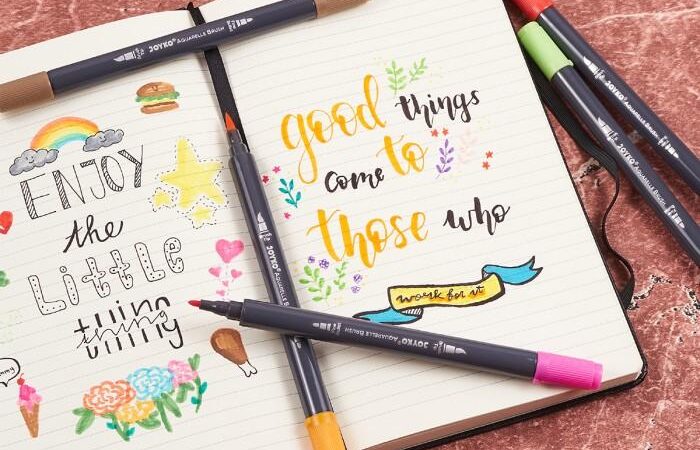 ENJOY
the
Little
thing
good things
come to
those who
work for it
JOYKO® AQUARELLE BRUSH
JOYKO® AQUARELLE BRUSH
JOYKO® AQUARELLE BRUSH
JOYKO® AQUARELLE BRUSH
JOYKO® AQUARELLE BRUSH